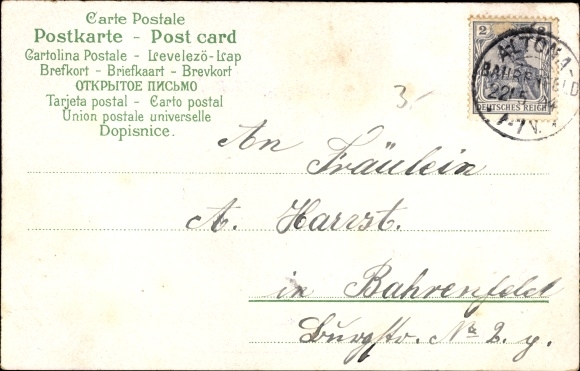 Carte Postale
Postkarte - Post card
Cartolina Postale - Levelezö-Lap
Brefkort - Briefkaart - Brevkort
ОТКРЫТОЕ ПИСЬМО
Tarjeta postal - Carto postal
Union postale universelle
Dopisnice.
2 2
DEUTSCHES REICH
ALTONA-
BAHRENFELD
22/5
7-
3,-
An Fräulein
A. Harvst.
in Bahrenfeld
Burgstr. No 2.